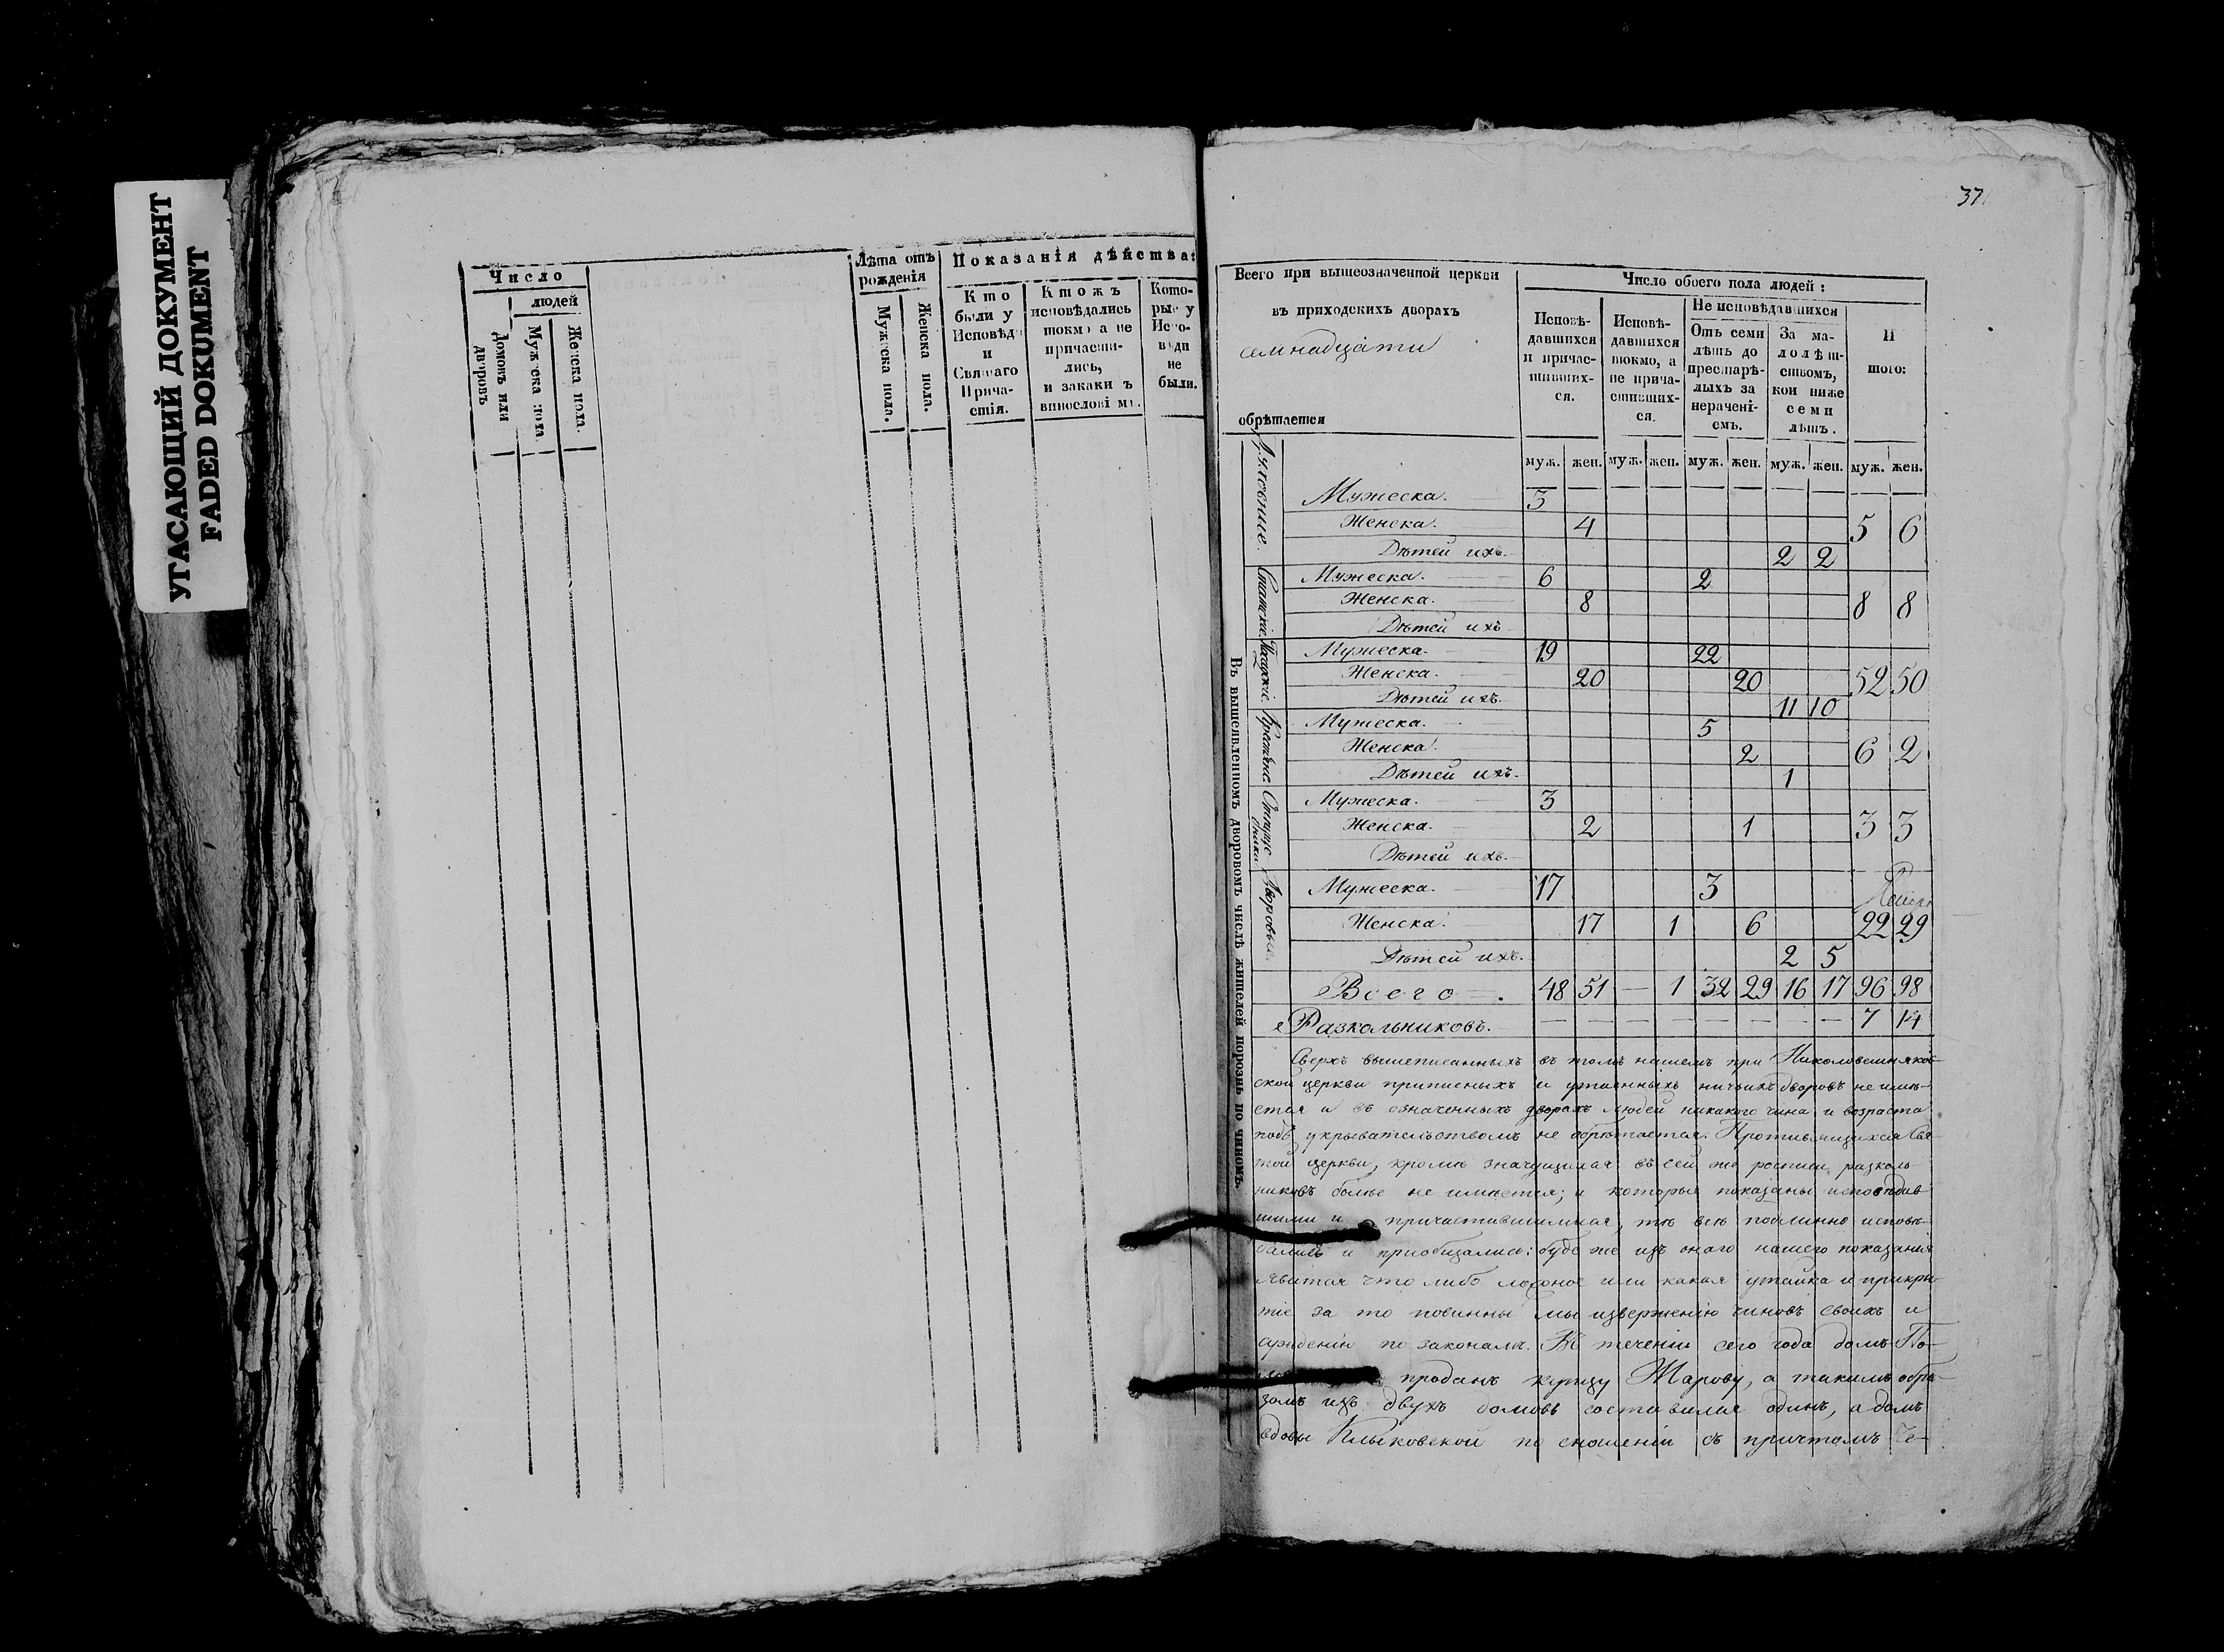 УГАСАЮЩИЙ ДОКУМЕНТ
FADED DOKUMENT
Число
людей
Домовъ или дворовъ
Мужеска пола
Женска пола.
Лѣта отъ рожденія
Мужеска пола.
Женска пола.
Показанія дѣйства:
Кто
были у
Исповѣди
и
Святаго
Прича-
стія.
Ктожъ
исповѣдались
токмо а не
причасти-
лись,
и закаки ъ
винослові мъ.
Кото-
рые у
Испо-
вѣди
не
были.
37
Всего при вышеозначенной церкви
въ приходскихъ дворахъ
семнадцати
обрѣтается
Число обоего пола людей:
Исповѣ-
давшихся
и причас-
тивших-
ся.
Исповѣ-
давшихся
токмо, а
не прича-
стивших-
ся.
Не исповѣдавшихся
Отъ семи
лѣтъ до
престарѣ-
лыхъ за
нерачені-
емъ.
За ма-
лолѣт-
ствомъ,
кои ниже
семи
лѣтъ.
И
того:
муж. жен. муж. жен. муж. жен. муж. жен. муж. жен.
Въ вышеявленномъ дворовомъ числѣ жителей порознь по чиномъ.
Духовные.
Мужеска. 3
Женска. 4 5 6
Дѣтей ихъ. 2 2
Статскіе.
Мужеска. 6 2
Женска. 8 8 8
Дѣтей ихъ
Мужеска. 19 22
Женска. 20 20 52 50
Дѣтей ихъ. 11 10
Крестьяне
Мужеска. 5
Женска. 2 6 2
Дѣтей ихъ. 1
Мужеска. 3
Женска. 2 1 3 3
Дѣтей ихъ.
Дворовые.
Мужеска. 17 3
Женска. 17 1 6 22 29
Дѣтей ихъ. 2 5
Всего. 48 51 — 1 32 29 16 17 96 98
Разкольниковъ. — — — — — — — — 7 14
Сверхъ вышеписанныхъ въ томъ нашемъ при
ской церкви приписныхъ и утаенныхъ ничьихъ дворовъ не имѣ-
ется и въ означенныхъ дворахъ людей никакого чина и возраста
подъ укрывательствомъ не обрѣтается. Противящихся Свя-
той церкви, кромѣ значущихся въ сей же росписи разколь-
никовъ болѣе не имѣется; и которыя показаны исповѣдав-
шими и причастившимися, тѣ всѣ подлинно исповѣ-
дались и приобщались: буде же изъ онаго нашего показанія
явится что либо ложное или какая утайка и прикры-
тіе за то повинны мы изверженію чиновъ своихъ и
сужденію по законамъ. Въ теченіи сего года домъ По-
проданъ купцу Жарову, а такимъ обра-
зомъ изъ двухъ домовъ составился одинъ, а домъ
вдовы Клыковской по сношеніи съ причтомъ Се-